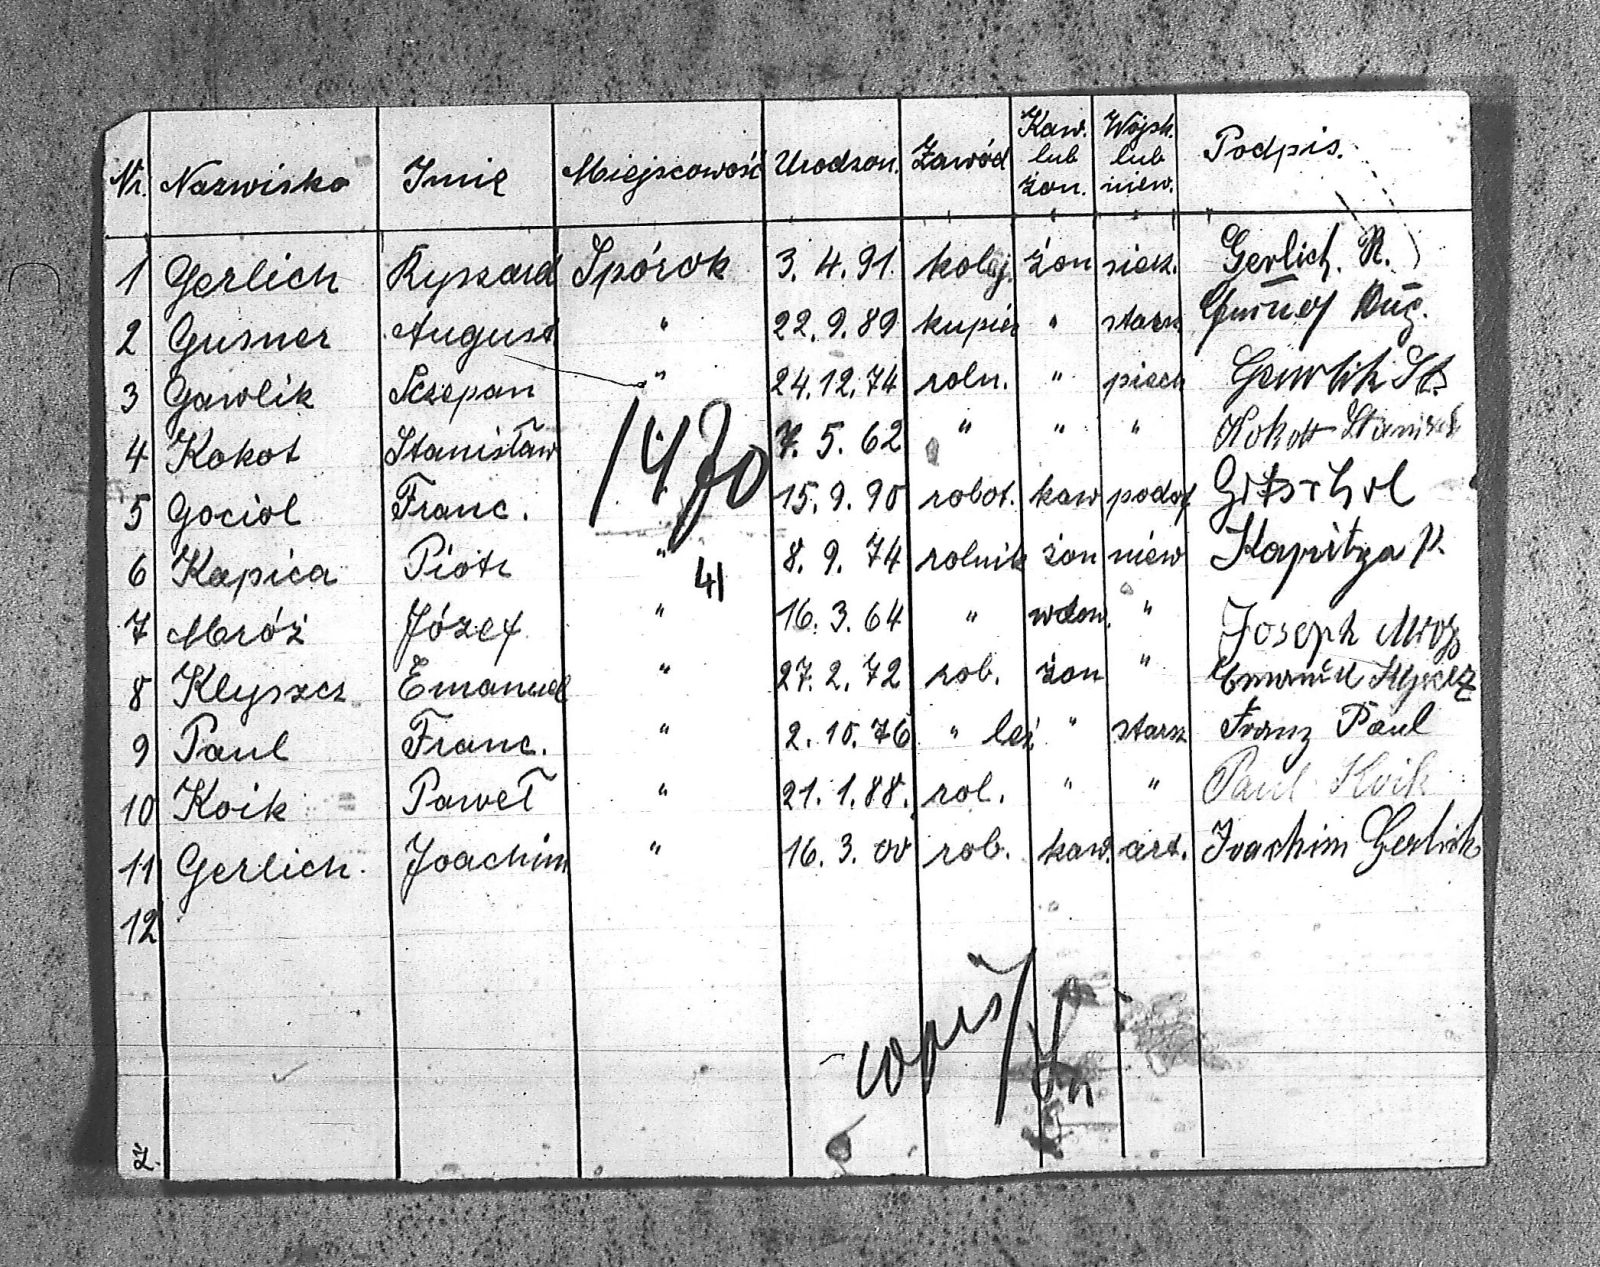 Nr. Nazwisko Imię Miejscowość Urodzon. Zawód Kaw. lub żon. Wojsk. lub niew. Podpis.
1 Gerlich Ryszard Spórok 3. 4. 91. kolej. żon Gerlich. R.
2 Gusner August " 22. 9. 89 kupiec " starsz
3 Gawlik Sczepan " 24. 12. 74 roln. " piech Gawlik St.
4 Kokot Stanisław 7. 5. 62 " " " Kokott Stanisek
5 Gociol Franc. 15. 9. 90 robot. kaw podof
1470
6 Kapica Piotr " 8. 9. 74 rolnik żon niew Kapitza P.
41
7 Mróż Józef " 16. 3. 64 " wdow. " Joseph Mroz
8 Klyszcz Emanuel " 27. 2. 72 rob. żon " Emanuel
9 Paul Franc. " 2. 10. 76 " leś " starsz Franz Paul
10 Koik Paweł " 21. 1. 88. rol. " " Paul Koik
11 Gerlich. Joachim " 16. 3. 00 rob. kaw. art. Joachim Gerlich
12
Z.